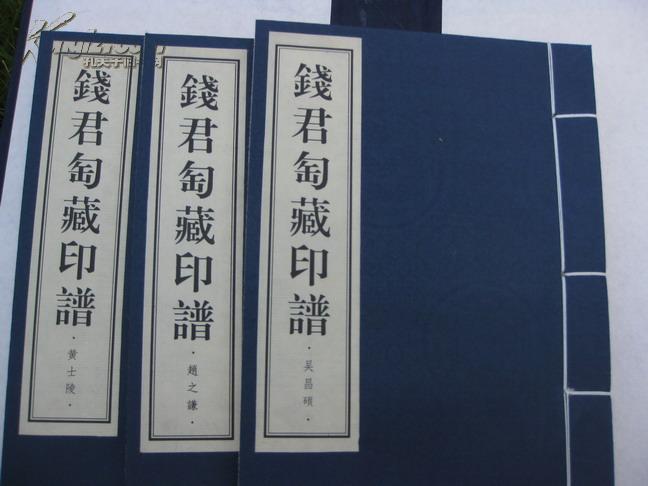 錢君匋藏印譜
·黃士陵·
錢君匋藏印譜
·趙之謙·
錢君匋藏印譜
·吴昌碩·
孔夫子旧书网